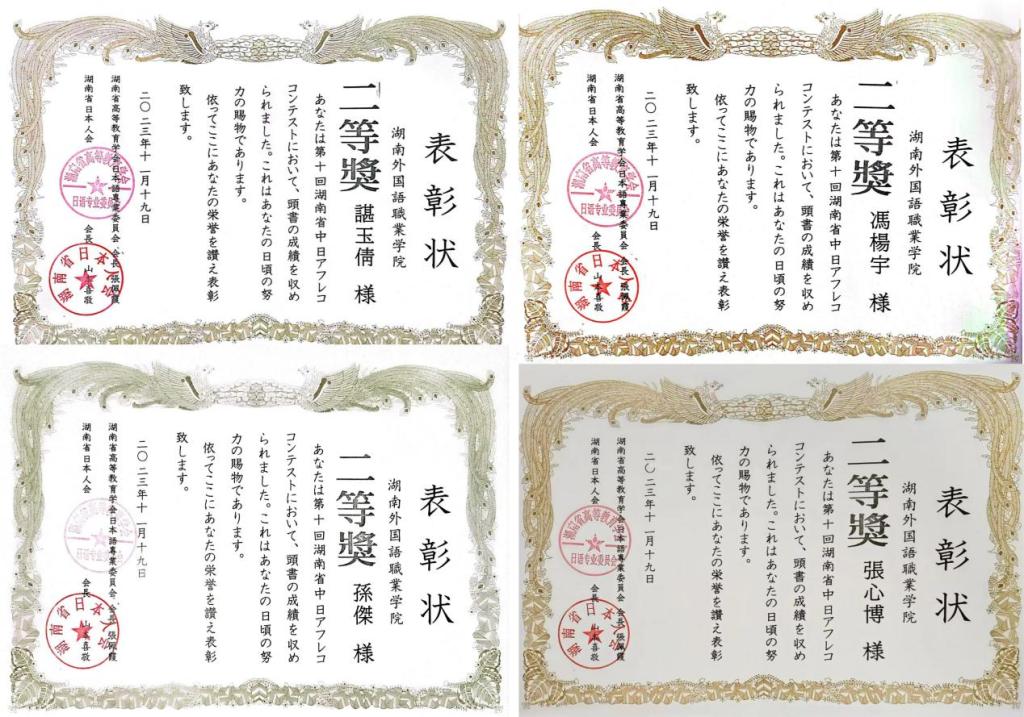 表彰状
湖南外国語職業学院
二等獎 諶玉倩 様
あなたは第十回湖南省中日アフレコ
コンテストにおいて、頭書の成績を収め
られました。これはあなたの日頃の努
力の賜物であります。
依ってここにあなたの栄誉を讃え表彰
致します。
二〇二三年十一月十九日
湖南省高等教育学会日本語専業委員会 会長 張佩霞
湖南省日本人会 会長 山本喜敬
日语专业委员会
湖南省日本人会
表彰状
湖南外国語職業学院
二等獎 馮楊宇 様
あなたは第十回湖南省中日アフレコ
コンテストにおいて、頭書の成績を収め
られました。これはあなたの日頃の努
力の賜物であります。
依ってここにあなたの栄誉を讃え表彰
致します。
二〇二三年十一月十九日
湖南省高等教育学会日本語専業委員会 会長 張佩霞
湖南省日本人会 会長 山本喜敬
日语专业委员会
湖南省日本人会
表彰状
湖南外国語職業学院
二等獎 孫傑 様
あなたは第十回湖南省中日アフレコ
コンテストにおいて、頭書の成績を収め
られました。これはあなたの日頃の努
力の賜物であります。
依ってここにあなたの栄誉を讃え表彰
致します。
二〇二三年十一月十九日
湖南省高等教育学会日本語専業委員会 会長 張佩霞
湖南省日本人会 会長 山本喜敬
日语专业委员会
湖南省日本人会
表彰状
湖南外国語職業学院
二等獎 張心博 様
あなたは第十回湖南省中日アフレコ
コンテストにおいて、頭書の成績を収め
られました。これはあなたの日頃の努
力の賜物であります。
依ってここにあなたの栄誉を讃え表彰
致します。
二〇二三年十一月十九日
湖南省高等教育学会日本語専業委員会 会長 張佩霞
湖南省日本人会 会長 山本喜敬
日语专业委员会
湖南省日本人会